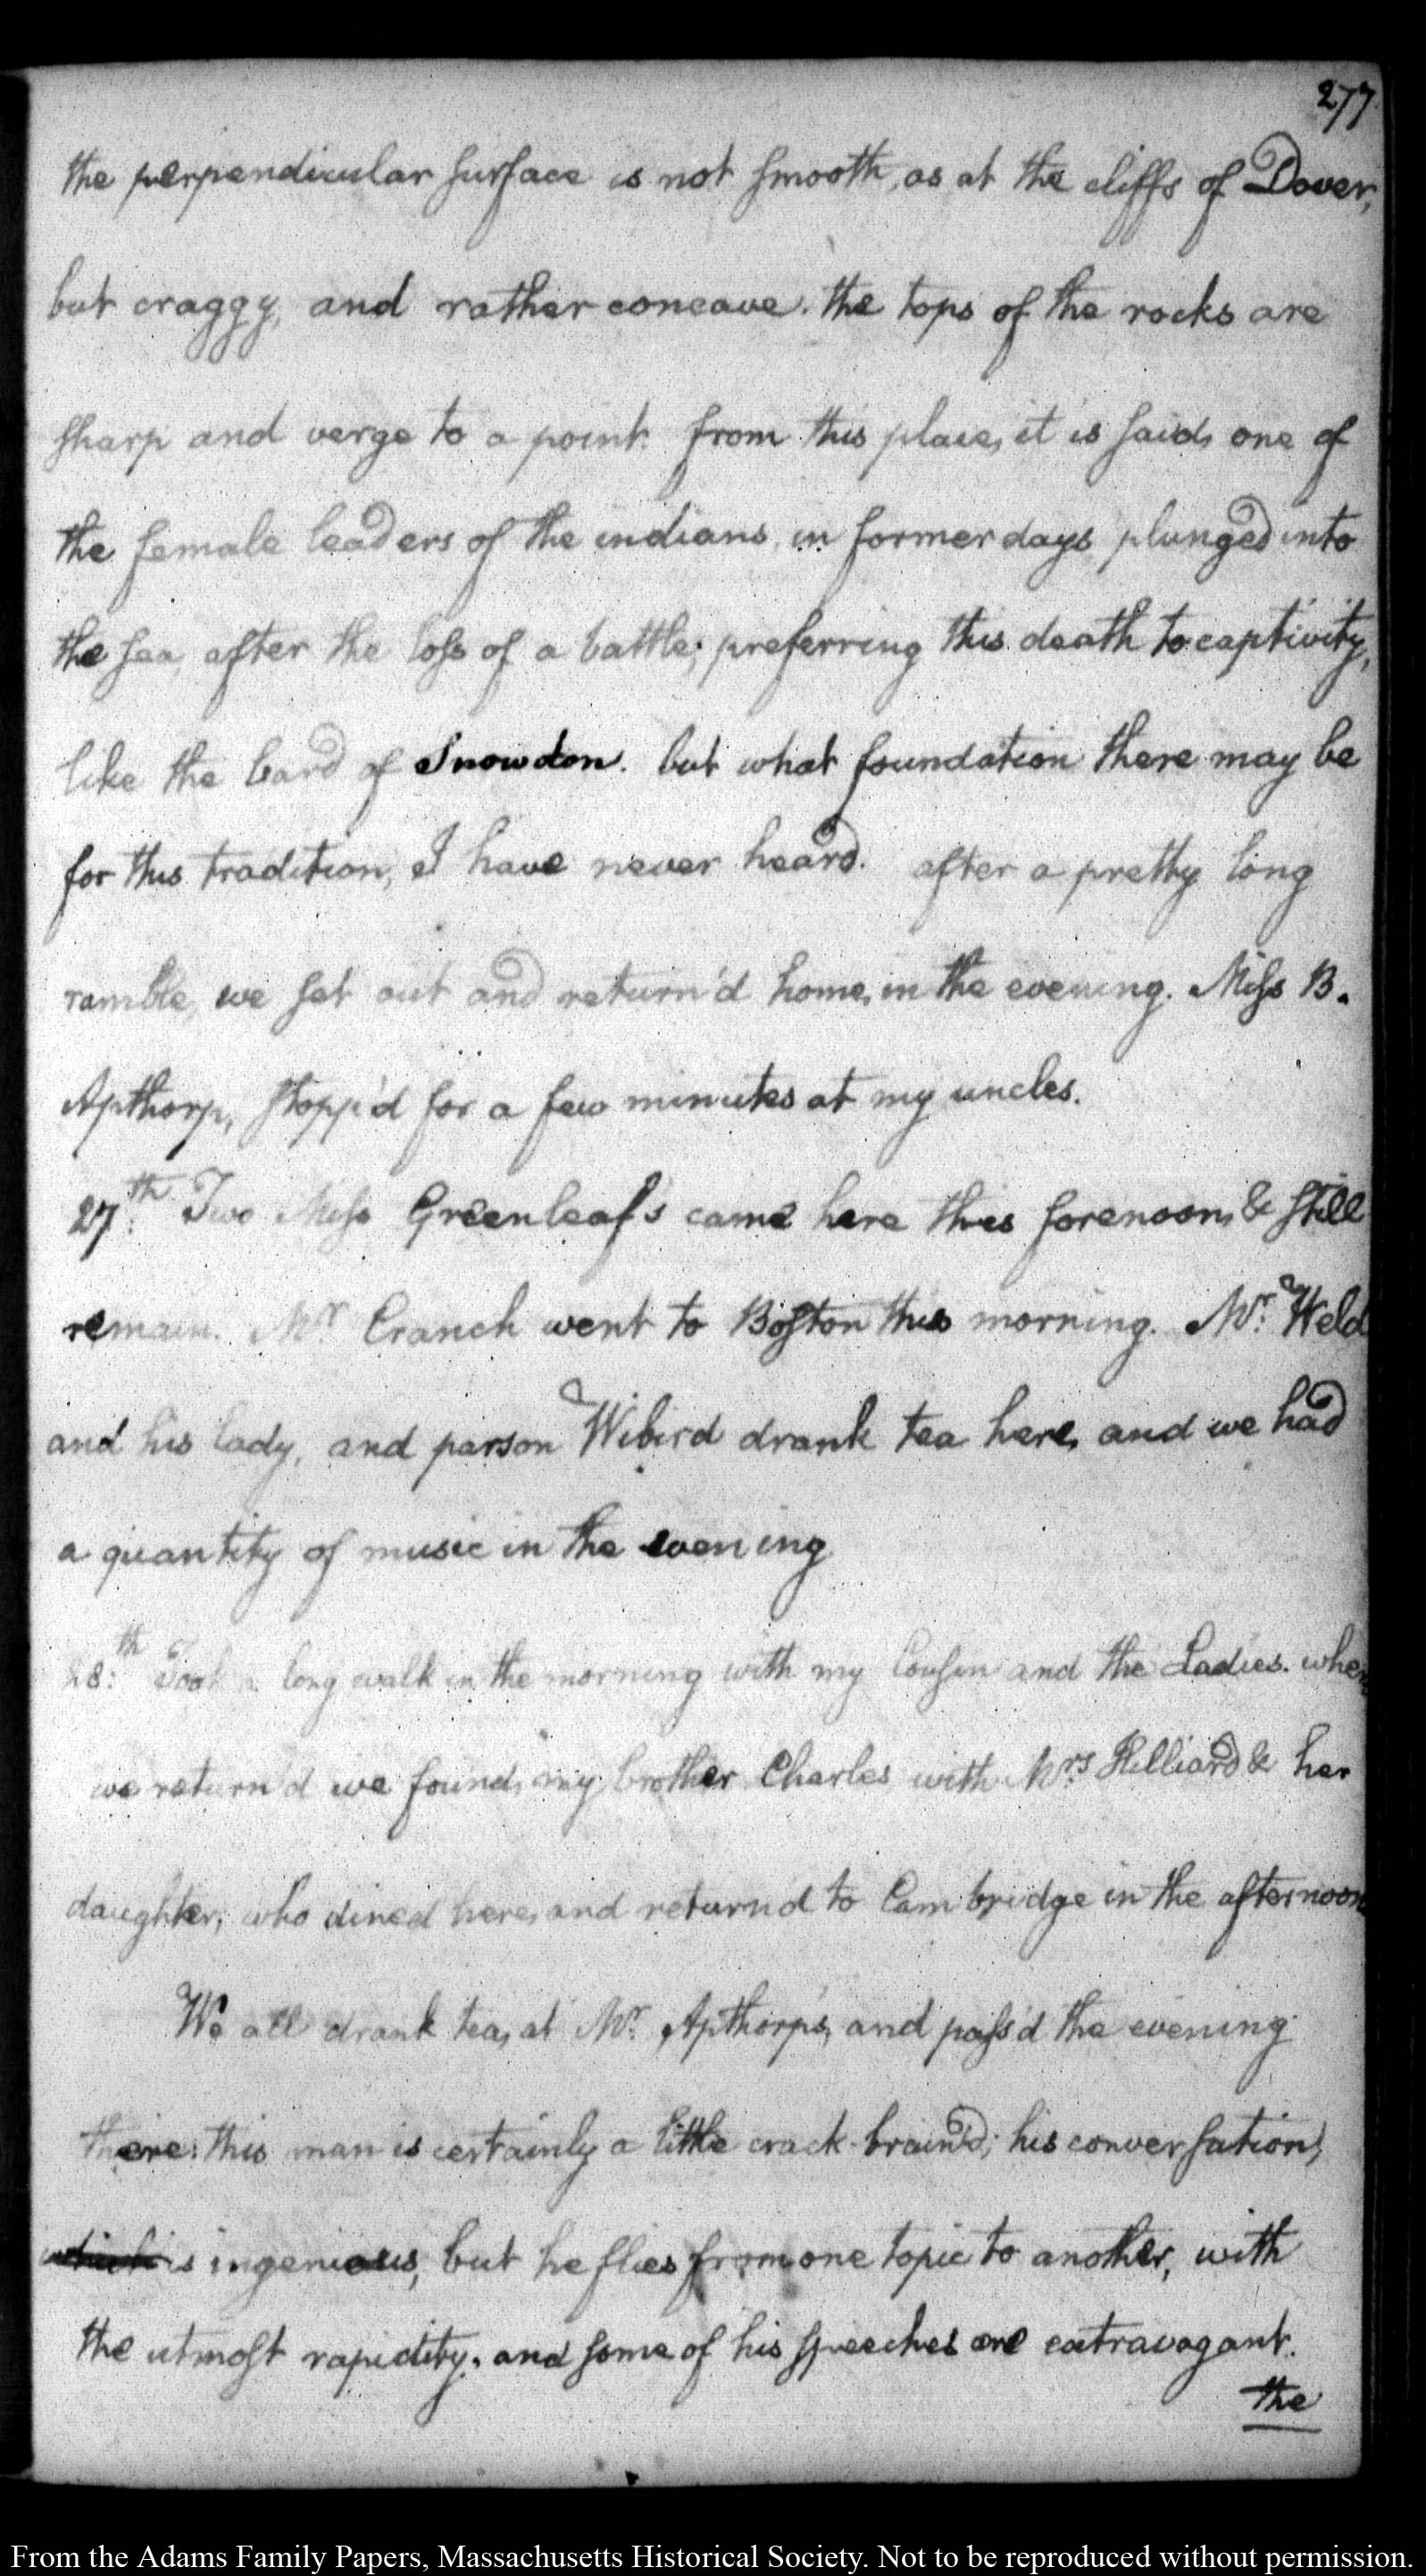 277
the perpendicular surface is not smooth, as at the cliffs of Dover,
but craggy, and rather concave. the tops of the rocks are
sharp and verge to a point. from this place, it is said, one of
the female leaders of the indians, in former days, plunged into
the sea, after the loss of a battle; preferring this death to captivity,
like the bard of Snowdon. but what foundation there may be
for this tradition, I have never heard. after a pretty long
ramble, we set out and return'd home, in the evening. Miss B.
Apthorp, stopp'd for a few minutes at my uncles.
27th. Two Miss Greenleafs came here this forenoon, & still
remain. Mr Cranch went to Boston this morning. Mr. Weld
and his lady, and parson Wibird drank tea here, and we had
a quantity of music in the evening
28th. Took a long walk in the morning with my Cousin and the Ladies. when
we return'd we found, my brother Charles, with Mrs Hilliard & her
daughter, who dined here, and return'd to Cambridge in the afternoon
We all drank tea, at Mr. Apthorp's, and pass'd the evening
there: this man is certainly a little crack-brain'd; his conversation,
which is ingenious, but he flies from one topic to another, with
the utmost rapidity, and some of his speeches are extravagant.
the
From the Adams Family Papers, Massachusetts Historical Society. Not to be reproduced without permission.